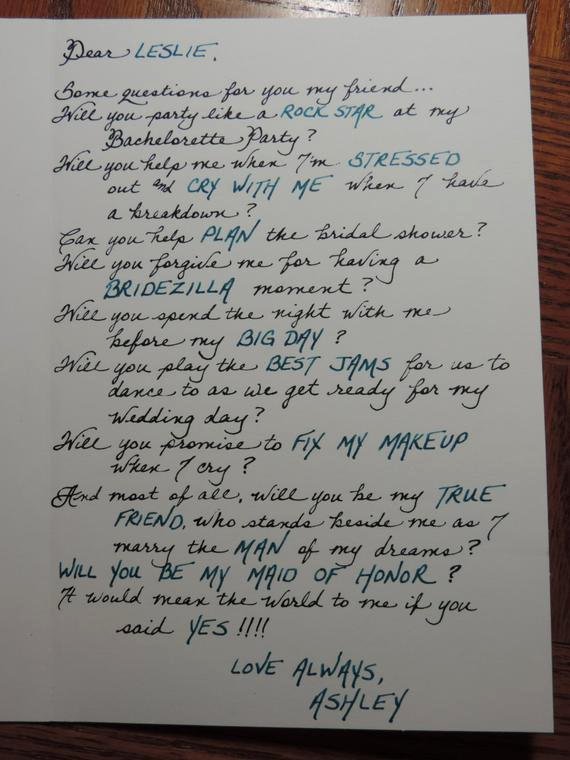 Dear LESLIE,
Some questions for you my friend...
Will you party like a ROCK STAR at my
Bachelorette Party?
Will you help me when I'm STRESSED
out and CRY WITH ME when I have
a breakdown?
Can you help PLAN the bridal shower?
Will you forgive me for having a
BRIDEZILLA moment?
Will you spend the night with me
before my BIG DAY?
Will you play the BEST JAMS for us to
dance to as we get ready for my
wedding day?
Will you promise to FIX MY MAKEUP
when I cry?
And most of all, will you be my TRUE
FRIEND, who stands beside me as I
marry the MAN of my dreams?
WILL YOU BE MY MAID OF HONOR?
It would mean the world to me if you
said YES!!!!
LOVE ALWAYS,
ASHLEY